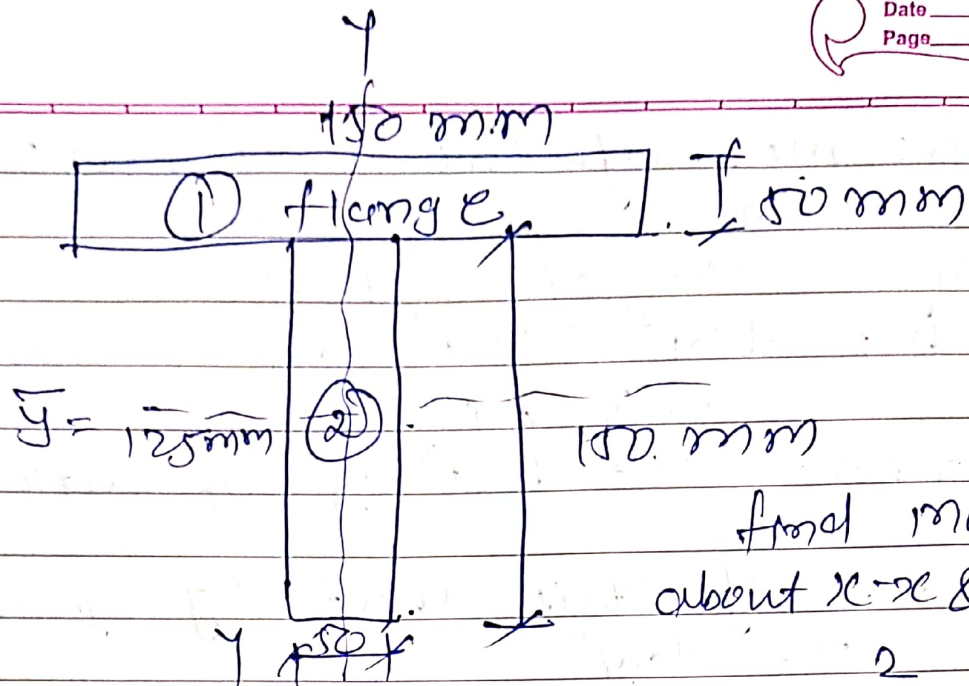 Date
Page
Y
150 m.m
① flange
50 mm
ȳ = 125mm
②
150. mm
find m
about x-x &
50
Y
2